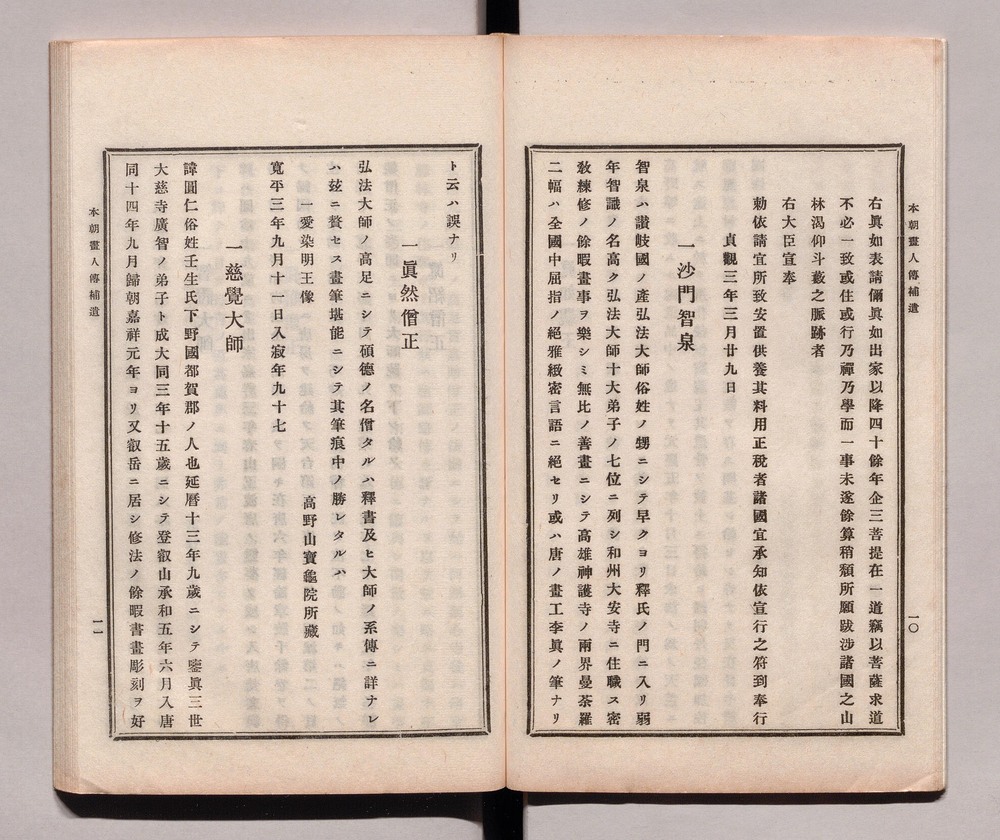 本朝畫人傳補遺
一〇
右眞如表請儞眞如出家以降四十餘年企三菩提在一道竊以菩薩求道
不必一致或住或行乃禪乃學而一事未遂餘算稍頽所願跋涉諸國之山
林渴仰斗藪之脈跡者
右大臣宣奉
勅依請宜所致安置供養其料用正稅者諸國宜承知依宣行之符到奉行
貞觀三年三月廿九日
一沙門智泉
智泉ハ讃岐國ノ產弘法大師俗姓ノ甥ニシテ早クヨリ釋氏ノ門ニ入リ弱
年智識ノ名高ク弘法大師十大弟子ノ七位ニ列シ和州大安寺ニ住職ス密
敎練修ノ餘暇畫事ヲ樂シミ無比ノ善畫ニシテ高雄神護寺ノ兩界曼荼羅
二幅ハ全國中屈指ノ絕雅緻密言語ニ絕セリ或ハ唐ノ畫工李眞ノ筆ナリ
ト云ハ誤ナリ
一眞然僧正
弘法大師ノ高足ニシテ碩德ノ名僧タルハ釋書及ヒ大師ノ系傳ニ詳ナレ
ハ玆ニ贅セス畫筆堪能ニシテ其筆痕中ノ勝レタルハ
一愛染明王像　高野山寶龜院所藏
寬平三年九月十一日入寂年九十七
一慈覺大師
諱圓仁俗姓壬生氏下野國都賀郡ノ人也延曆十三年九歲ニシテ鑒眞三世
大慈寺廣智ノ弟子ト成大同三年十五歲ニシテ登叡山承和五年六月入唐
同十四年九月歸朝嘉祥元年ヨリ又叡岳ニ居シ修法ノ餘暇書畫彫刻ヲ好
本朝畫人傳補遺
一一